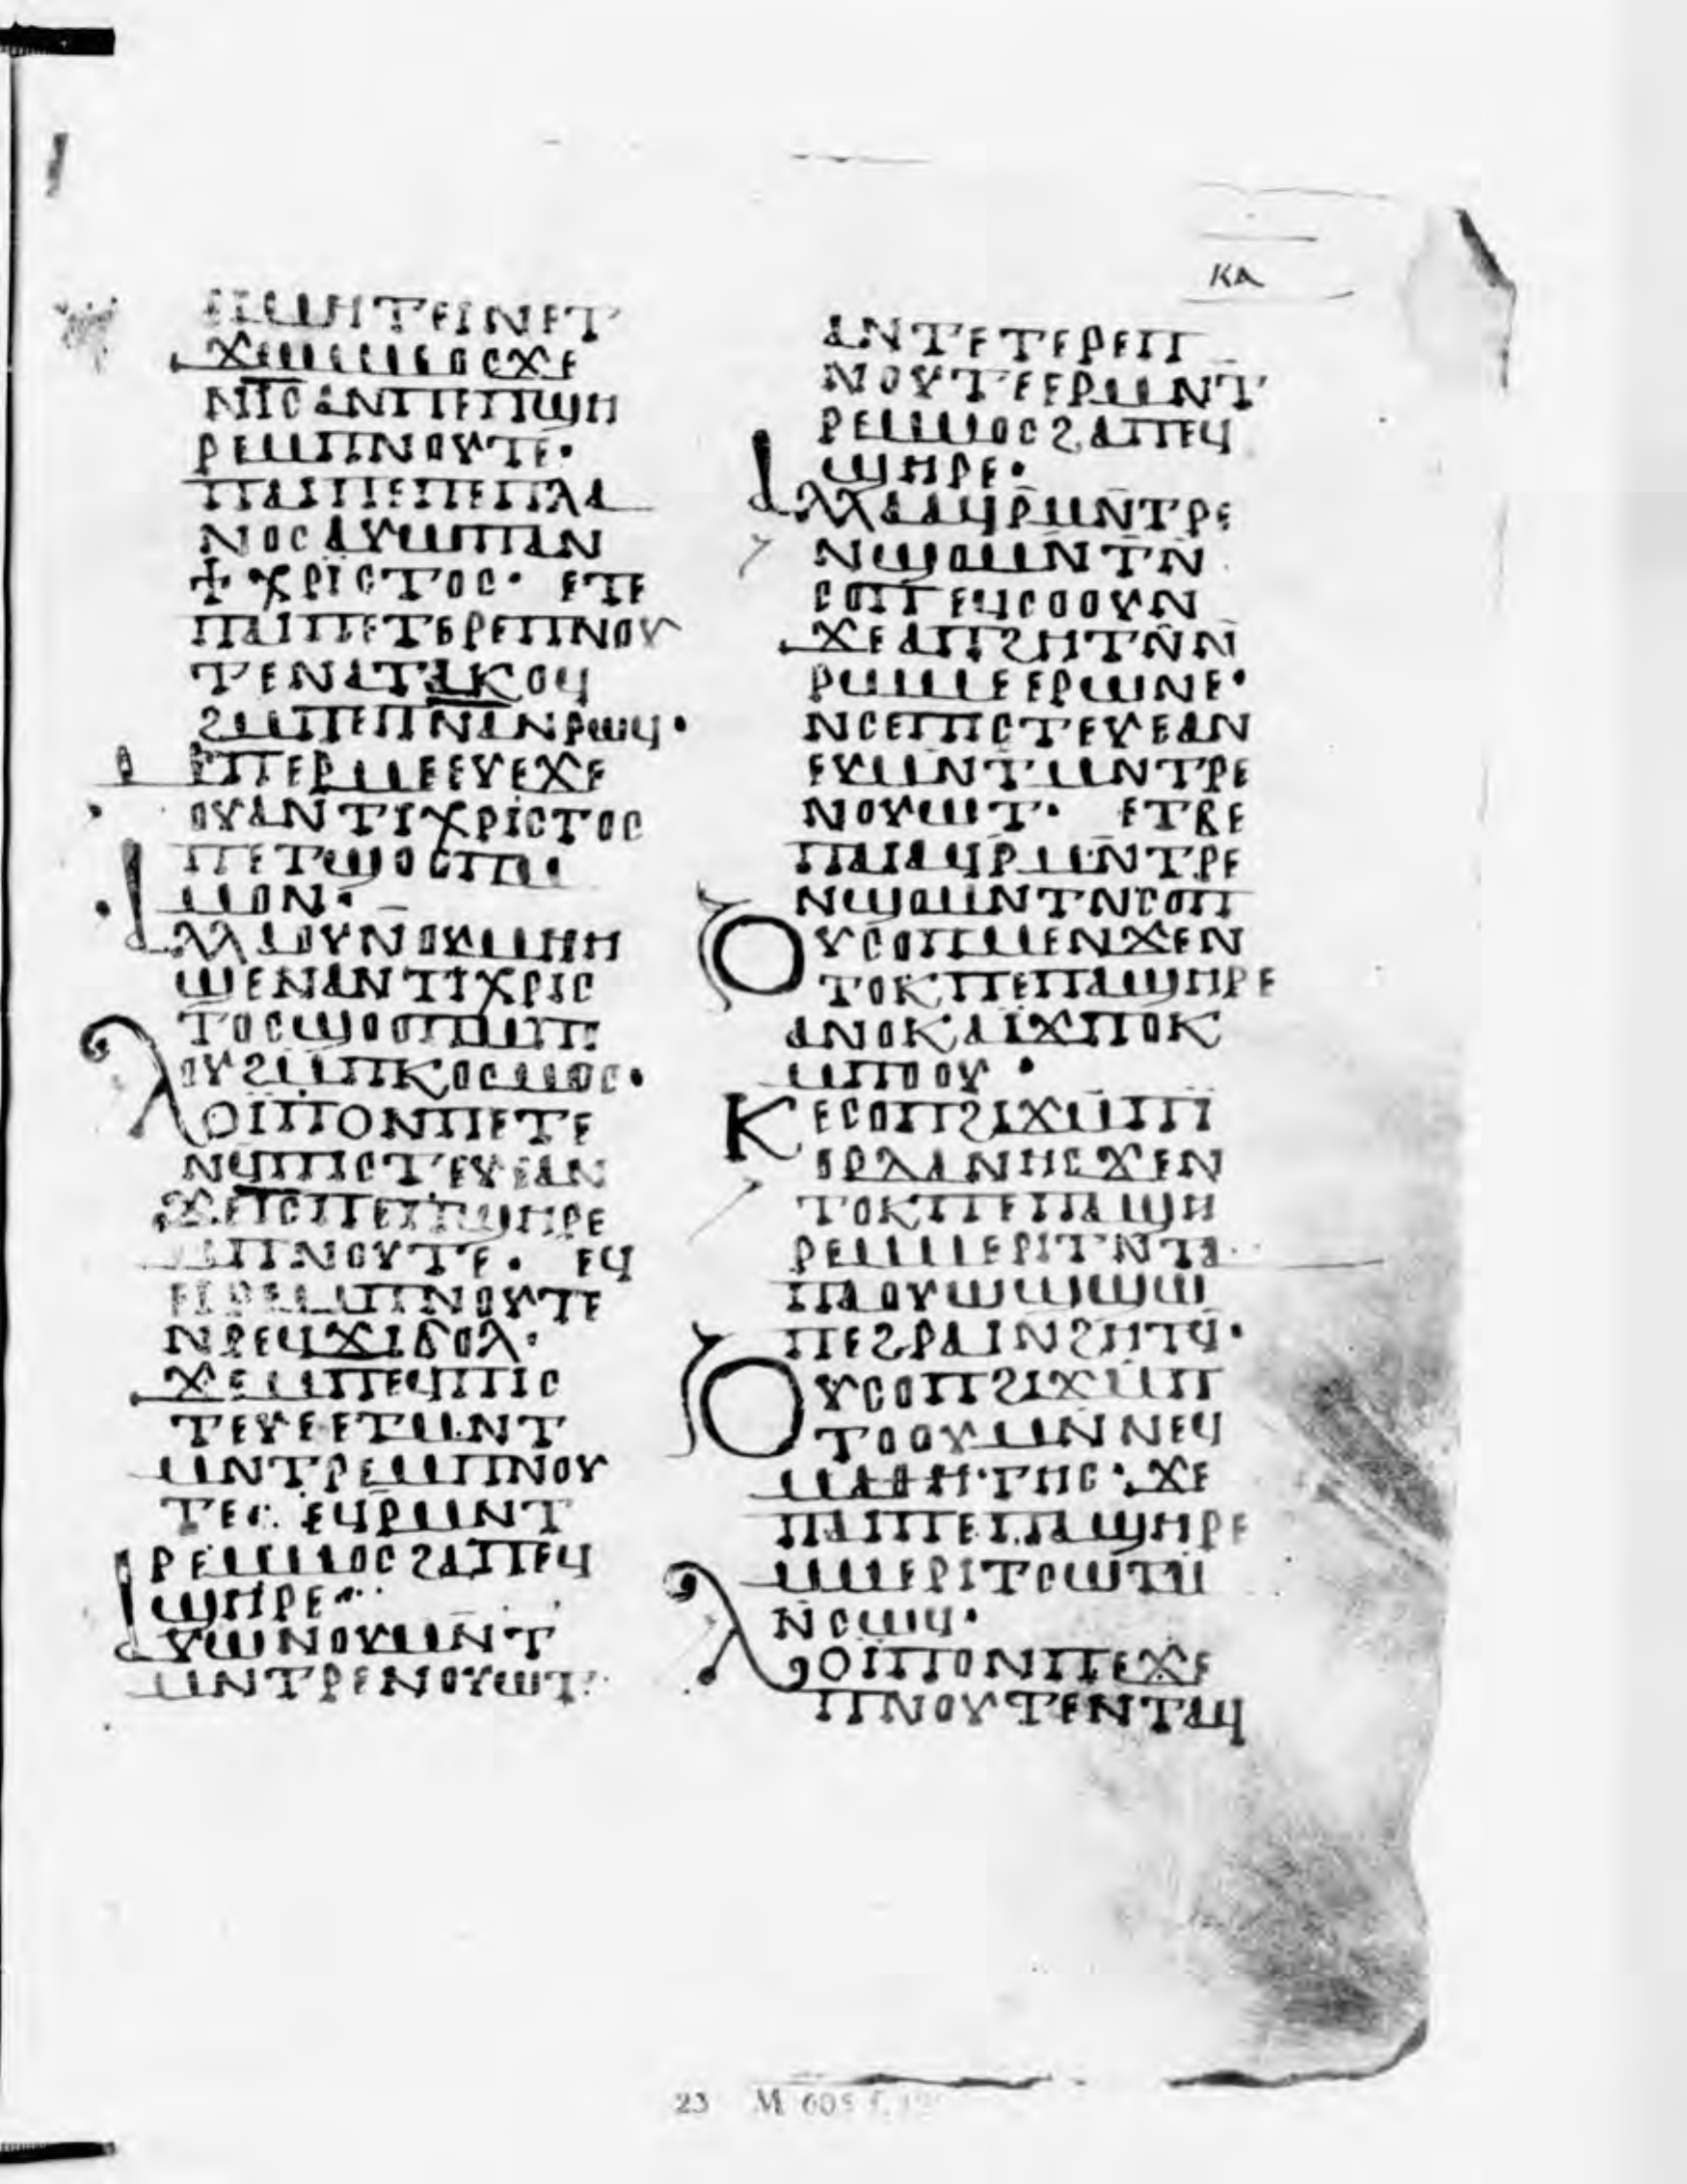 ⲕⲁ
ⲉⲓⲙⲏⲧⲉⲓⲛⲉⲧ
ϫⲱⲙⲙⲟⲥϫⲉ
ⲛⲓ̅ⲥ̅ⲁⲛⲡⲉⲡϣⲏ
ⲣⲉⲙⲡⲛⲟⲩⲧⲉ·
ⲡⲁⲓⲡⲉⲡⲉⲡⲗⲁ
ⲛⲟⲥⲁⲩⲱⲡⲁⲛ
ϯⲭⲣⲓⲥⲧⲟⲥ· ⲉⲧⲉ
ⲡⲁⲓⲡⲉⲧⲉⲣⲉⲡⲛⲟⲩ
ⲧⲉⲛⲁⲧⲁⲕⲟϥ
ϩⲙⲡⲉⲡⲛ̅ⲁ̅ⲛⲣⲱϥ·
ⲙⲡⲉⲣⲙⲉⲉⲩⲉϫⲉ
ⲟⲩⲁⲛⲧⲓⲭⲣⲓⲥⲧⲟⲥ
ⲡⲉⲧϣⲟⲟⲡⲙ
ⲙⲟⲛ·
ⲁⲗⲗⲁⲟⲩⲛⲟⲩⲙⲏⲏ
ϣⲉⲛⲁⲛⲧⲓⲭⲣⲓⲥ
ⲧⲟⲥϣⲟⲟⲡⲙⲡ
ⲟⲟⲩϩⲙⲡⲕⲟⲥⲙⲟⲥ·
ⲗⲟⲓⲡⲟⲛⲡⲉⲧⲉ
ⲛϥⲡⲓⲥⲧⲉⲩⲉⲁⲛ
ϫⲉⲓ̅ⲥ̅ⲡⲉⲡϣⲏⲣⲉ
ⲙⲡⲛⲟⲩⲧⲉ· ⲉϥ
ⲉⲓⲣⲉⲙⲡⲛⲟⲩⲧⲉ
ⲛⲣⲉϥϫⲓϭⲟⲗ·
ϫⲉⲙⲡⲉϥⲡⲓⲥ
ⲧⲉⲩⲉⲉⲧⲙⲛⲧ
ⲙⲛⲧⲣⲉⲙⲡⲛⲟⲩ
ⲧⲉ· ⲉϥⲣⲙⲛⲧ
ⲣⲉⲙⲙⲟⲥϩⲁⲡⲉϥ
ϣⲏⲣⲉ·
ⲁⲩⲱⲛⲟⲩⲙⲛⲧ
ⲙⲛⲧⲣⲉⲛⲟⲩⲱⲧ
ⲁⲛⲧⲉⲧⲉⲣⲉⲡ
ⲛⲟⲩⲧⲉⲉⲣⲙⲛⲧ
ⲣⲉⲙⲙⲟⲥϩⲁⲡⲉϥ
ϣⲏⲣⲉ·
ⲁⲗⲗⲁⲁϥⲣⲙⲛⲧⲣⲉ
ⲛϣⲟⲙⲛⲧⲛ
ⲥⲟⲡⲉϥⲥⲟⲟⲩⲛ
ϫⲉⲁⲡϩⲏⲧⲛⲛ
ⲣⲱⲙⲉⲉⲣⲱⲛⲉ·
ⲛⲥⲉⲡⲓⲥⲧⲉⲩⲉⲁⲛ
ⲉⲩⲙⲛⲧⲙⲛⲧⲣⲉ
ⲛⲟⲩⲱⲧ· ⲉⲧⲃⲉ
ⲡⲁⲓⲁϥⲣⲙⲛⲧⲣⲉ
ⲛϣⲟⲙⲛⲧⲛⲥⲟⲡ
ⲟⲩⲥⲟⲡⲙⲉⲛϫⲉⲛ
ⲧⲟⲕⲡⲉⲡⲁϣⲏⲣⲉ
ⲁⲛⲟⲕⲁⲓϫⲡⲟⲕ
ⲙⲡⲟⲟⲩ·
ⲕⲉⲥⲟⲡϩⲓϫⲙⲡⲓ
ⲟⲣⲇⲁⲛⲏⲥϫⲉⲛ
ⲧⲟⲕⲡⲉⲡⲁϣⲏ
ⲣⲉⲙⲙⲉⲣⲓⲧⲛⲧⲁ
ⲡⲁⲟⲩⲱϣϣⲱ
ⲡⲉϩⲣⲁⲓⲛϩⲏⲧϥ·
ⲟⲩⲥⲟⲡϩⲓϫⲙⲡ
ⲧⲟⲟⲩⲙⲛⲛⲉϥ
ⲙⲁⲑⲏⲧⲏⲥ·ϫⲉ
ⲡⲁⲓⲡⲉⲡⲁϣⲏⲣⲉ
ⲙⲙⲉⲣⲓⲧⲥⲱⲧⲙ
ⲛⲥⲱϥ·
ⲗⲟⲓⲡⲟⲛⲡⲉϫⲉ
ⲡⲛⲟⲩⲧⲉⲛⲧⲁϥ
23 M 605 f.